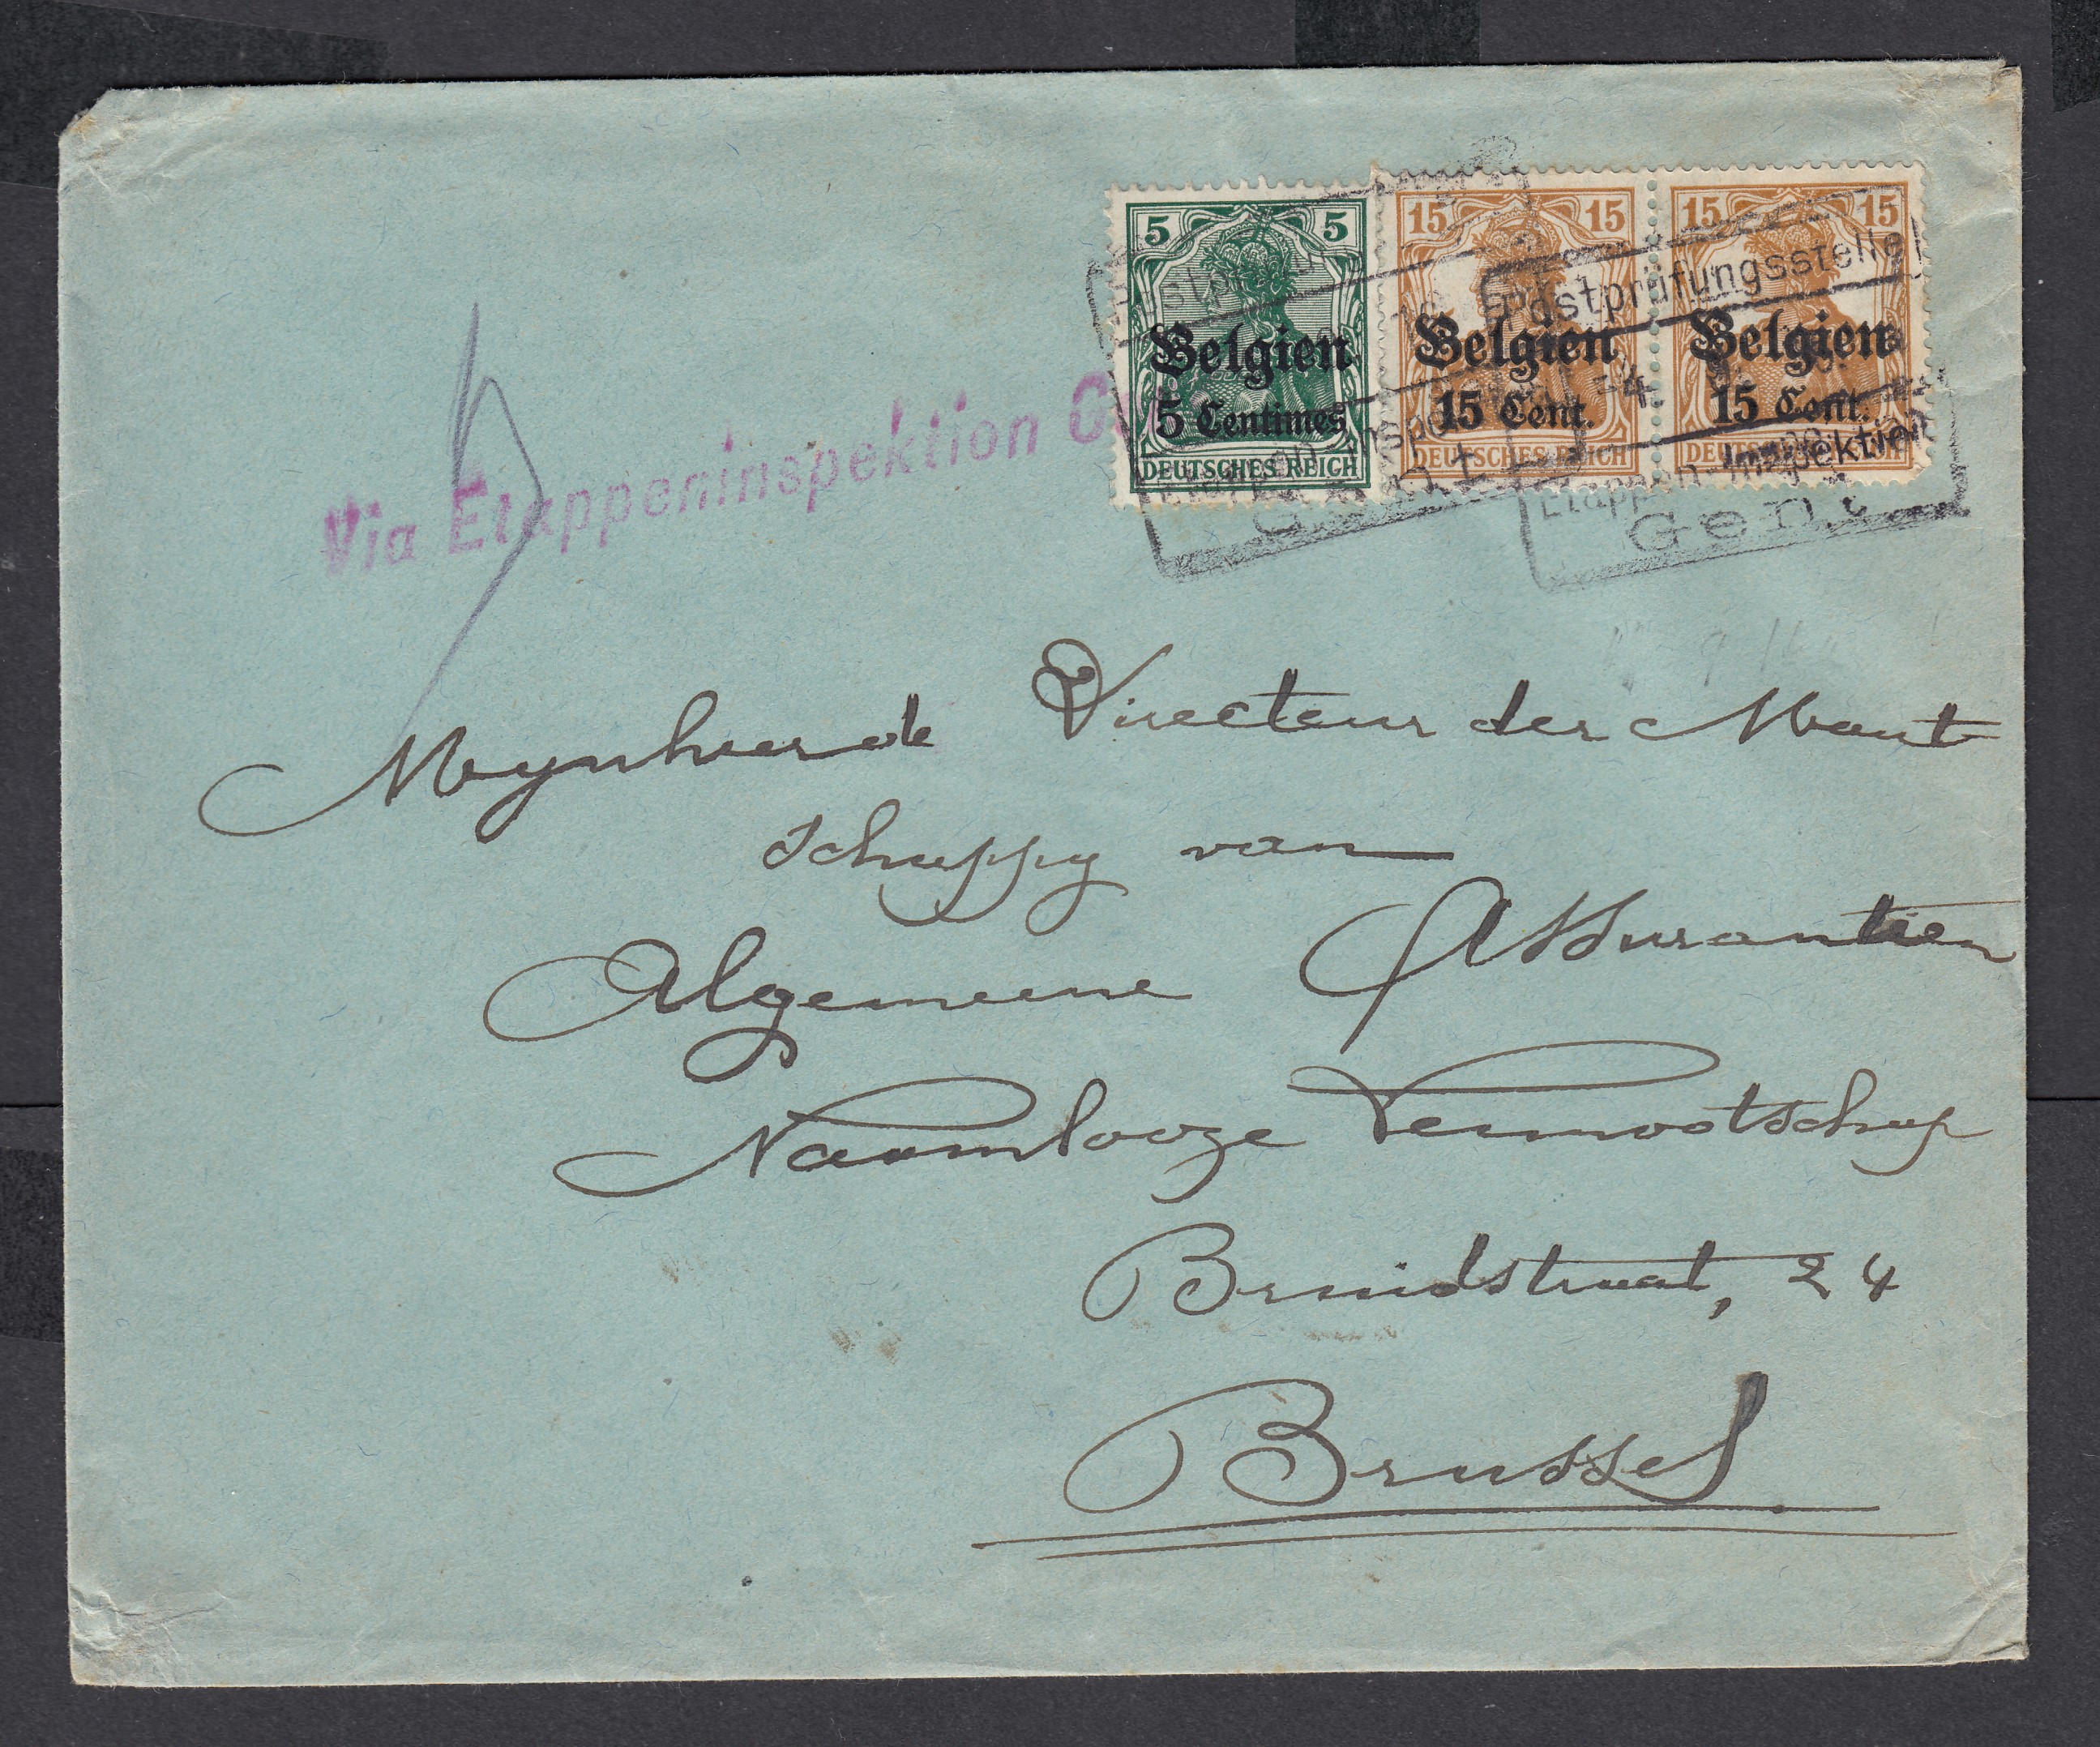 5 5
Belgien
5 Centimes
DEUTSCHES REICH
15 15
Belgien
15 Cent.
DEUTSCHES REICH
15 15
Belgien
15 Cent.
DEUTSCHES REICH
Postprüfungsstelle
-4.
Etappen-Inspektion
Gent
Via Etappeninspektion
Mynheer de Directeur der Maat
schappy van
Algemeene Assurantien
Naamlooze Vennootschap
Bruidstraat, 24
Brussel